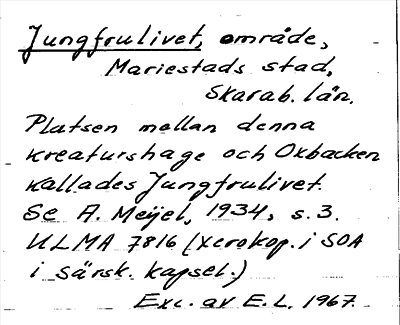 Jungfrulivet, område,
Mariestads stad,
Skarab. län.
Platsen mellan denna
kreaturshage och Oxbacken
kallades Jungfrulivet.
Se A. Meijel, 1934, s. 3.
ULMA 7816 (xerokop. i SOA
i särsk. kapsel.)
Exc. av E. L. 1967.